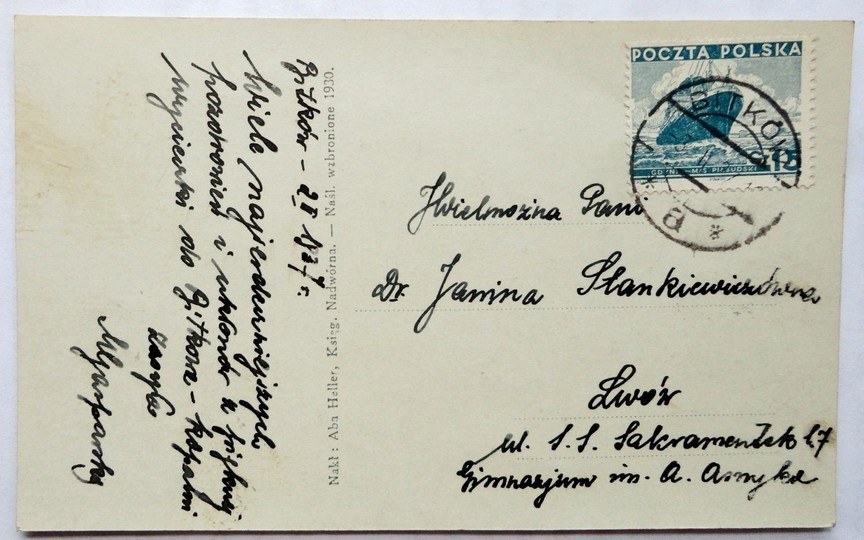 Bitków – 2 V 1937 r.
Wiele najserdeczniejszych
pozdrowień i ukłonów z pięknej
wycieczki do Bitkowa – kopalni
zasyła
Nakł: Aba Heller, Księg. Nadwórna. — Naśl. wzbronione 1930.
POCZTA POLSKA
GDYNIA-M/S PIŁSUDSKI
15
BITKÓW
a
JWielmożna Pani
Dr. Janina Stankiewiczówna
Lwów
ul. S.S. Sakramentek 17
Gimnazjum im. A. Asnyka